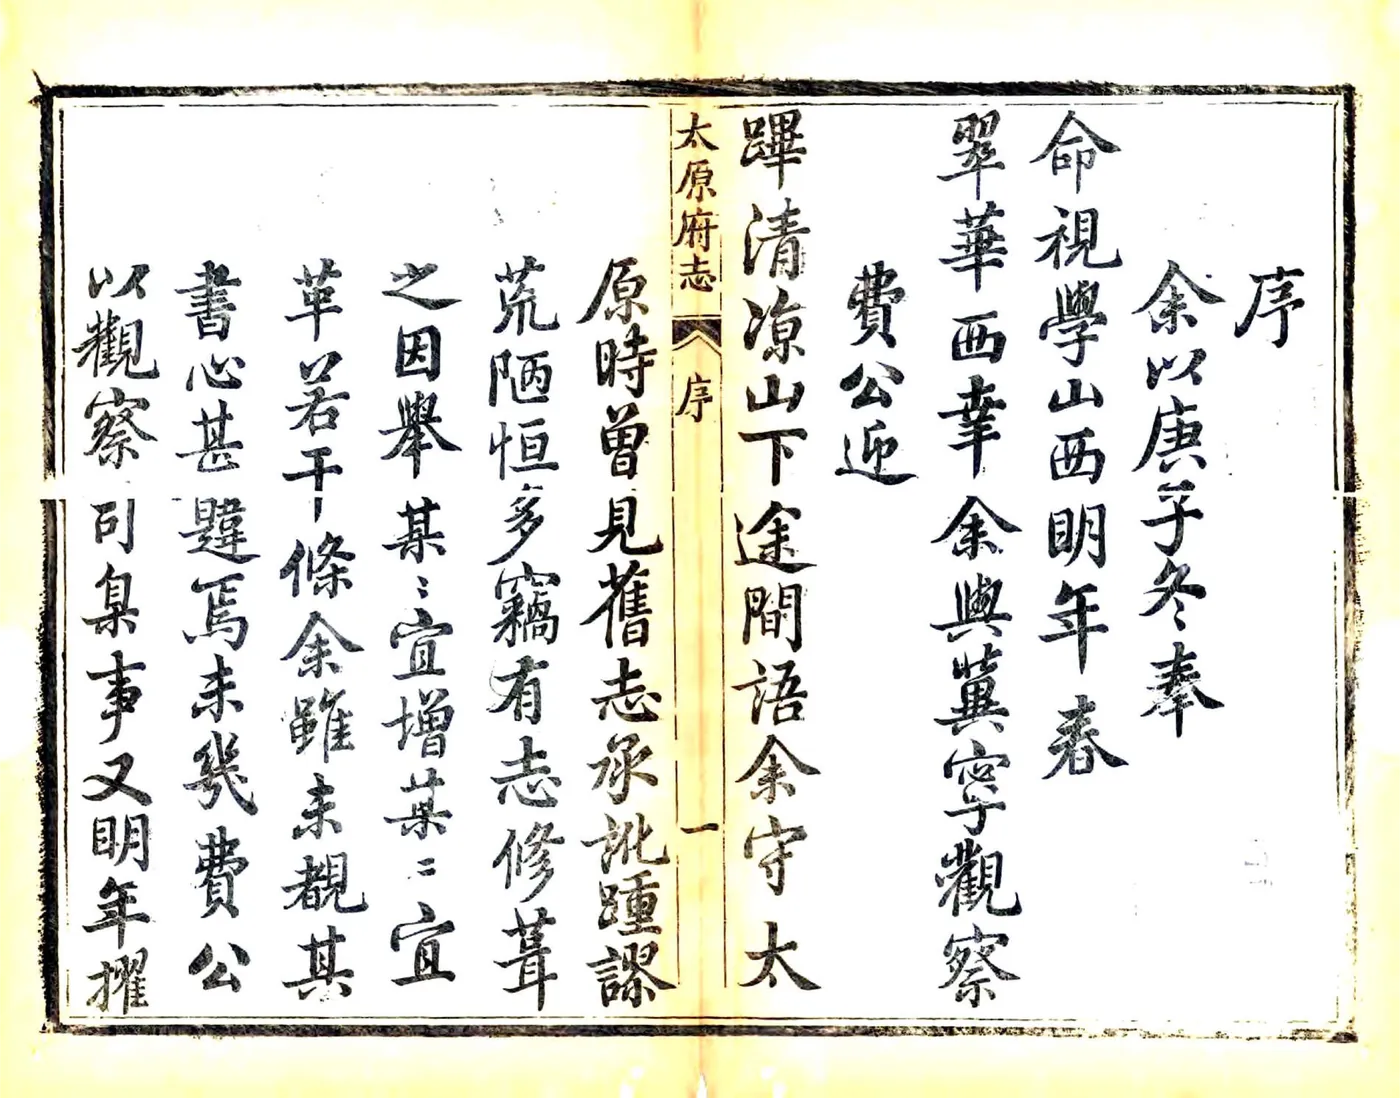 序
余以庚子冬奉
命視學山西明年春
翠華西幸余與冀寧觀察
費公迎
蹕清涼山下途間語余守太
太原府志
序
一
原時曾見舊志承訛踵謬
荒陋恒多竊有志修葺
之因舉某〻宜增某〻宜
革若干條余雖未覩其
書心甚韙焉未幾費公
以觀察司臬事又明年擢